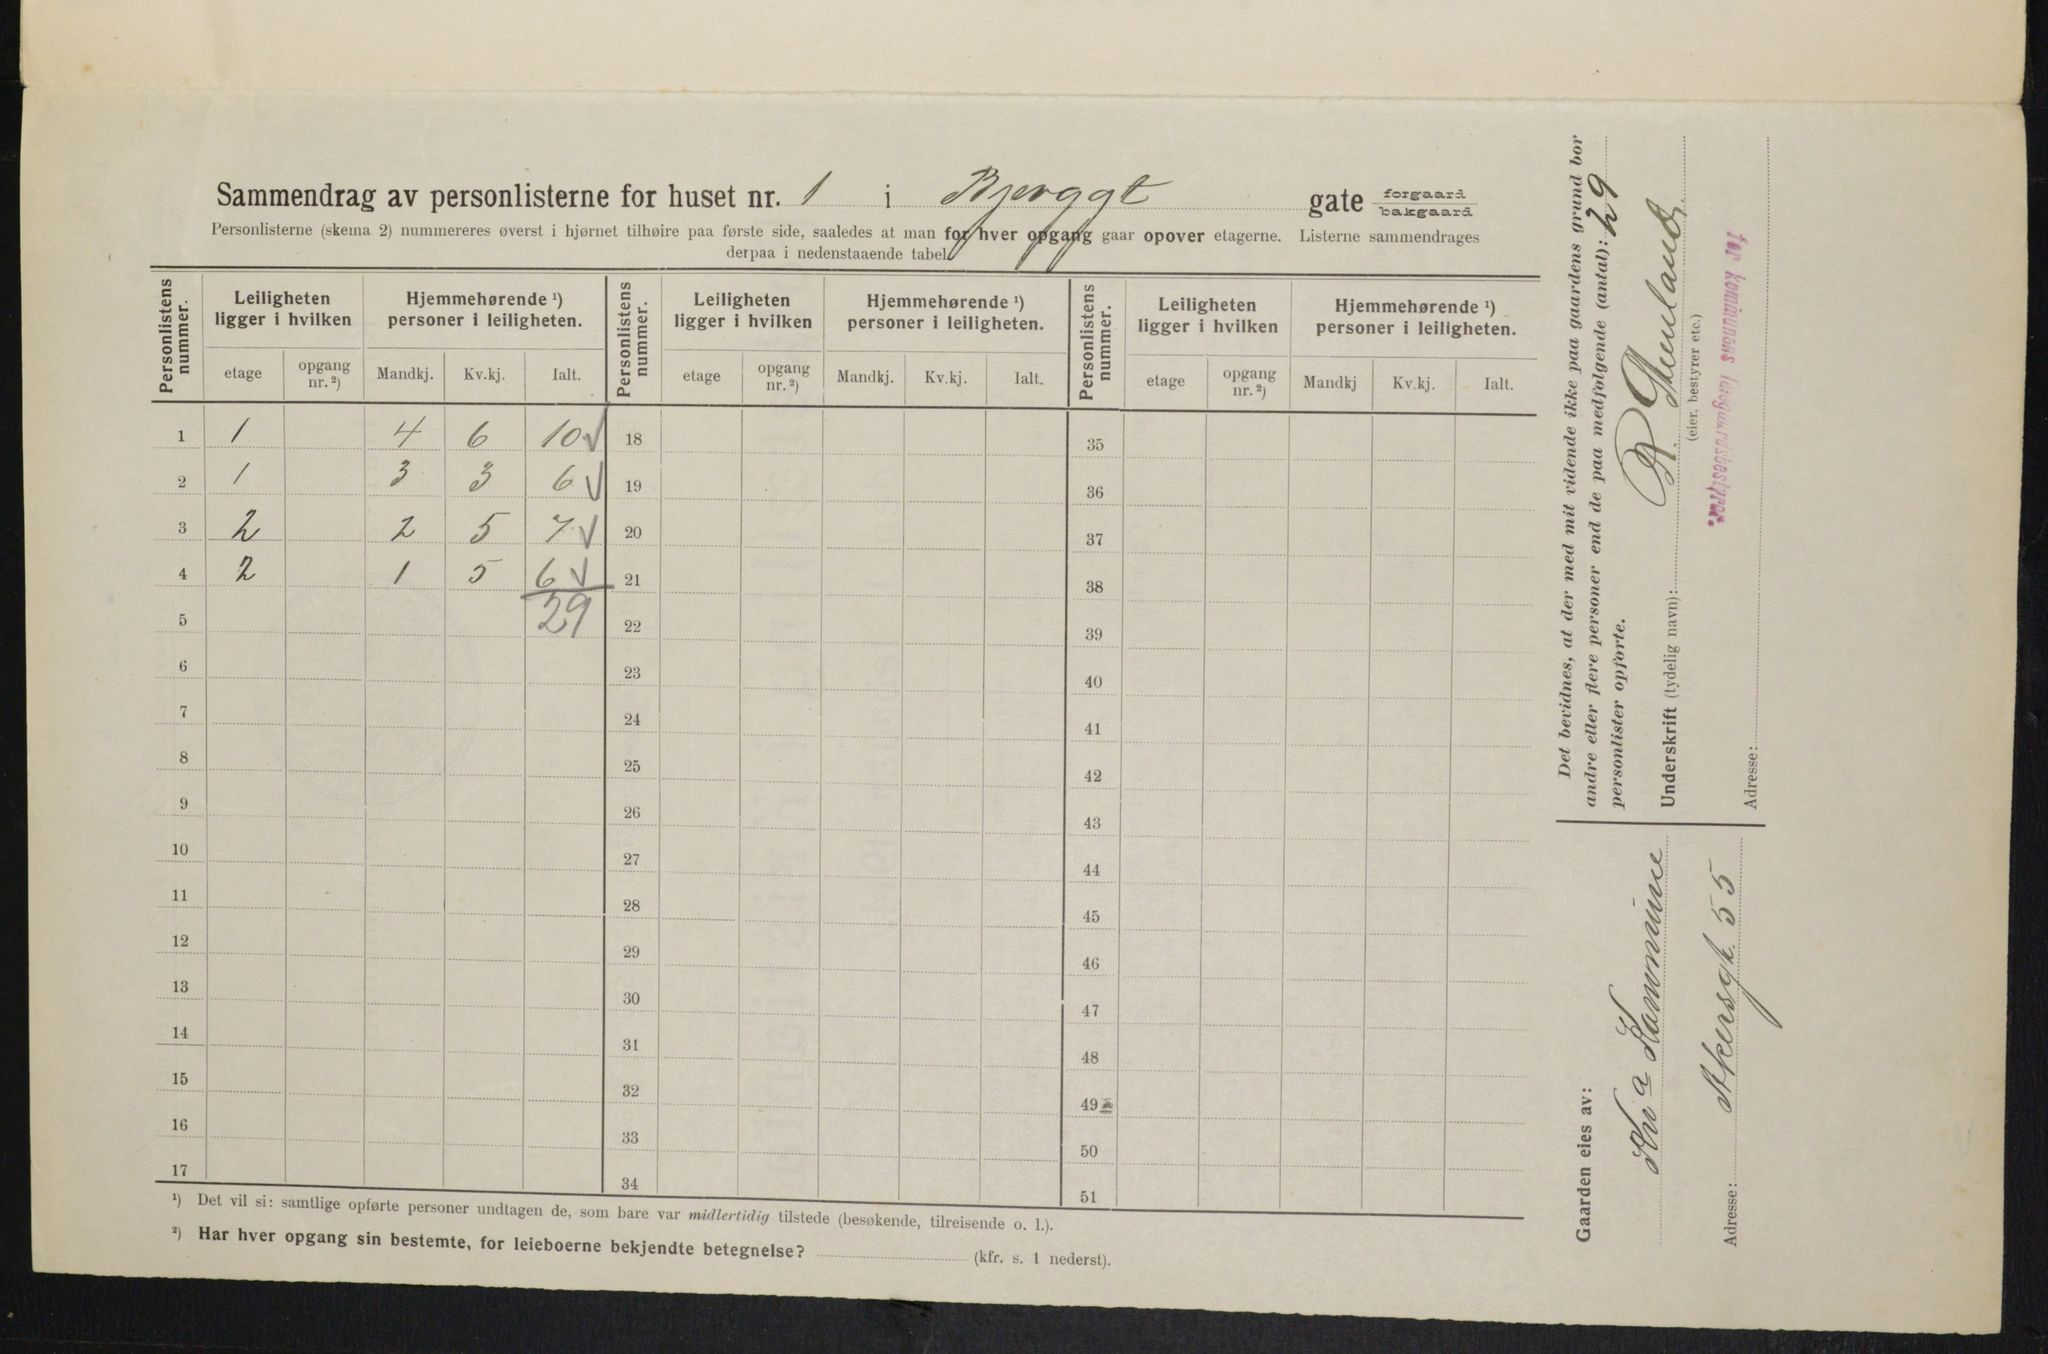 Sammendrag av personlisterne for huset nr. 1 i Bjerggt gate forgaard bakgaard
Personlisterne (skema 2) nummereres øverst i hjørnet tilhøire paa første side, saaledes at man for hver opgang gaar opover etagerne. Listerne sammendrages
derpaa i nedenstaaende tabel.
Personlistens nummer. Leiligheten ligger i hvilken Hjemmehørende ¹) personer i leiligheten. Personlistens nummer. Leiligheten ligger i hvilken Hjemmehørende ¹) personer i leiligheten. Personlistens nummer. Leiligheten ligger i hvilken Hjemmehørende ¹) personer i leiligheten.
etage opgang nr. ²) Mandkj. Kv.kj. Ialt. etage opgang nr. ²) Mandkj. Kv.kj. Ialt. etage opgang nr. ²) Mandkj Kv.kj. Ialt.
1 1 4 6 10 √ 18 35
2 1 3 3 6 √ 19 36
3 2 2 5 7 √ 20 37
4 2 1 5 6 √ 21 38
5 29 22 39
6 23 40
7 24 41
8 25 42
9 26 43
10 27 44
11 28 45
12 29 46
13 30 47
14 31 48
15 32 49
16 33 50
17 34 51
¹) Det vil si: samtlige opførte personer undtagen de, som bare var midlertidig tilstede (besøkende, tilreisende o. l.).
²) Har hver opgang sin bestemte, for leieboerne bekjendte betegnelse? (kfr. s. 1 nederst).
Det bevidnes, at der med mit vidende ikke paa gaardens grund bor
andre eller flere personer end de paa medfølgende (antal): 29
personlister opførte.
Underskrift (tydelig navn):
(eier, bestyrer etc.)
for kommunens leiegaardsbestyrer.
Adresse:
Gaarden eies av:
Kr.a Kommune
Adresse: Akersgt. 55